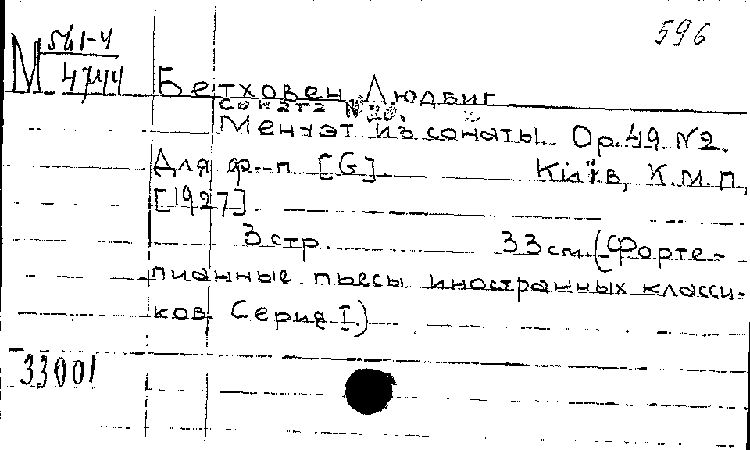 596
М 541-4
4744
Бетховен Людвиг
Соната № 20
Менуэт из сонаты. Op. 49 № 2.
Для ф-п [G]. Київ, К.М.П.,
[1927].
3 стр. 33 см. (Форте-
пианные пьесы иностранных класси-
ков. Серия I.)
33001